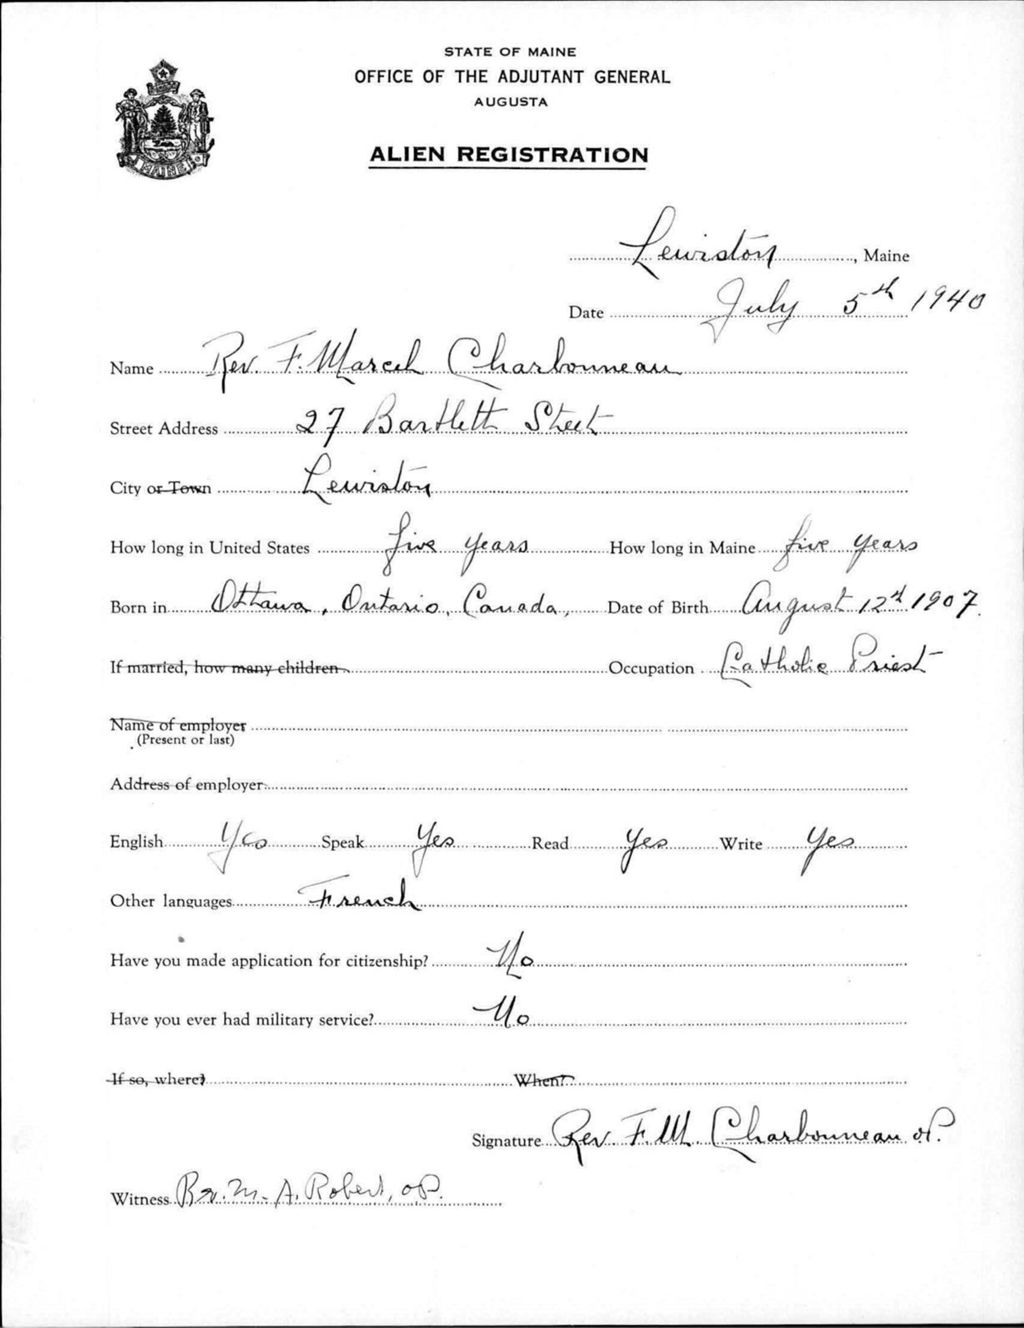 STATE OF MAINE
OFFICE OF THE ADJUTANT GENERAL
AUGUSTA
ALIEN REGISTRATION
MAINE
Lewiston, Maine
Date July 5th 1940
Name Rev. F. Marcel Charbonneau
Street Address 27 Bartlett Street
City or Town Lewiston
How long in United States five years How long in Maine five years
Born in Ottawa, Ontario, Canada, Date of Birth August 12d 1907.
If married, how many children Occupation Catholic Priest
Name of employer
(Present or last)
Address of employer
English Yes Speak Yes Read Yes Write Yes
Other languages French
Have you made application for citizenship? No
Have you ever had military service? No
If so, where? When?
Signature Rev. F. M. Charbonneau o.P.
Witness Rev. M. A. Robert, o.P.